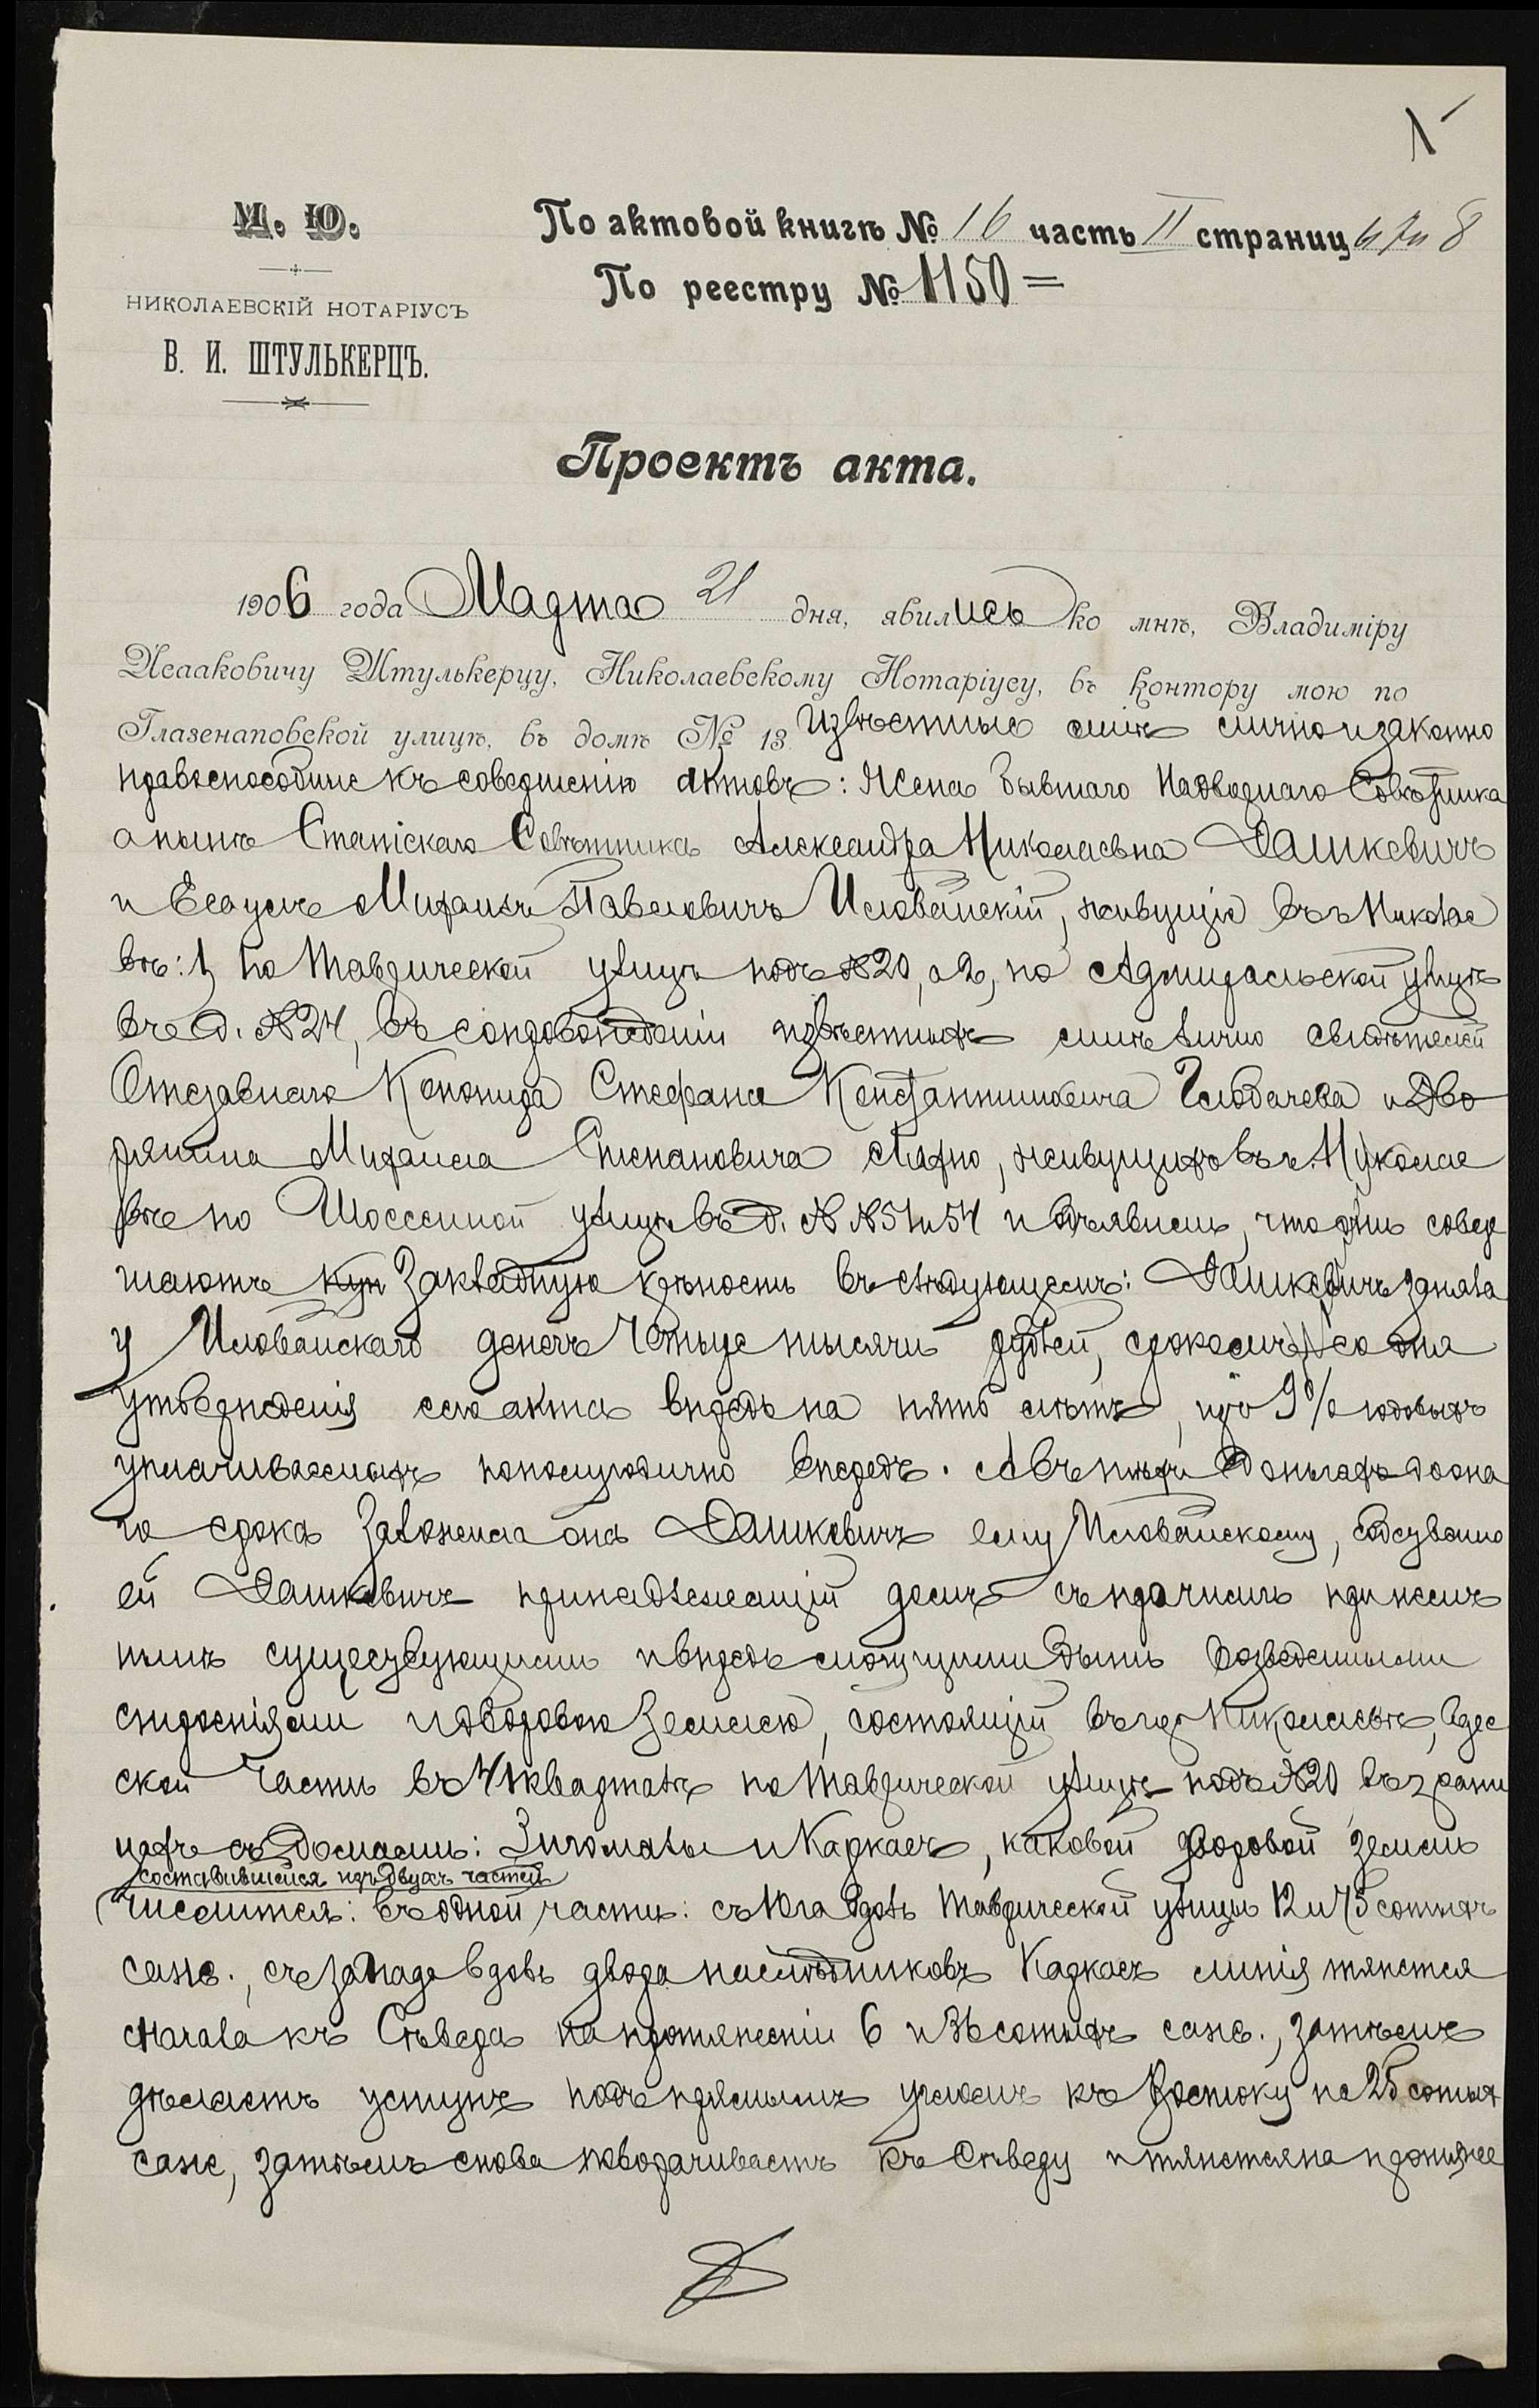 1
М. Ю.
НИКОЛАЕВСКІЙ НОТАРІУСЪ
В. И. ШТУЛЬКЕРЦЪ.
По актовой книгѣ № 16 часть II страниц 6 7 и 8
По реестру № 1150 =
Проектъ акта.
1906 года Марта 21 дня, явились ко мнѣ, Владиміру
Исааковичу Штулькерцу, Николаевскому Нотаріусу, въ контору мою по
Глазенаповской улицѣ, въ домѣ № 13 извѣстные мнѣ лично и законно
правоспособные къ совершенію актовъ: Жена бывшаго Надворнаго Совѣтника
а нынѣ Статскаго Совѣтника Александра Николаевна Дашкевичъ
и Есаулъ Михаилъ Павловичъ Иловайскій, живущіе въ г. Николае
вѣ: 1, по Таврической улицѣ подъ № 20, а 2, по Адмиральской улицѣ
въ д. № 24, въ сопровожденіи извѣстныхъ мнѣ лично свидѣтелей
Отставнаго Стефана Константиновича и Дво
рянина Михаила Степановича живущихъ въ г. Николае
вѣ по Шоссейной улицѣ въ д. № № 51 и 54 и объявили, что они совер
шаютъ куп закладную крѣпость въ слѣдующемъ: Дашкевичъ заняла
у Иловайскаго денегъ Четыре тысячи рублей, срокомъ со дня
утвержденія сего акта впредь на пять лѣтъ, изъ 9% годовыхъ
уплачиваемыхъ пополугодично впередъ. А въ тѣхъ деньгахъ до она
го срока заложила она Дашкевичъ ему Иловайскому, собственно
ей Дашкевичъ принадлежащій домъ съ прочими при немъ
нынѣ существующими и впредь могущими быть возведенными
строеніями и дворовою землею, состоящій въ гор. Николаевѣ, Одес
ской части въ 41 кварталѣ по Таврической улицѣ подъ № 20 въ грани
цахъ съ домами: и Каркаса, каковой дворовой земли
составившейся изъ двухъ частей
числится: въ одной части: съ Юга вдоль Таврической улицы 12 и 75 сотыхъ
саж., съ запада вдоль двора наслѣдниковъ Каркаса линія тянется
сначала къ Сѣверу на протяженіи 6 и 36 сотыхъ саж., затѣмъ
дѣлаетъ уступъ подъ прямымъ угломъ къ Востоку на 25 сотыхъ
саж, затѣмъ снова поворачиваетъ къ Сѣверу и тянется на протяже